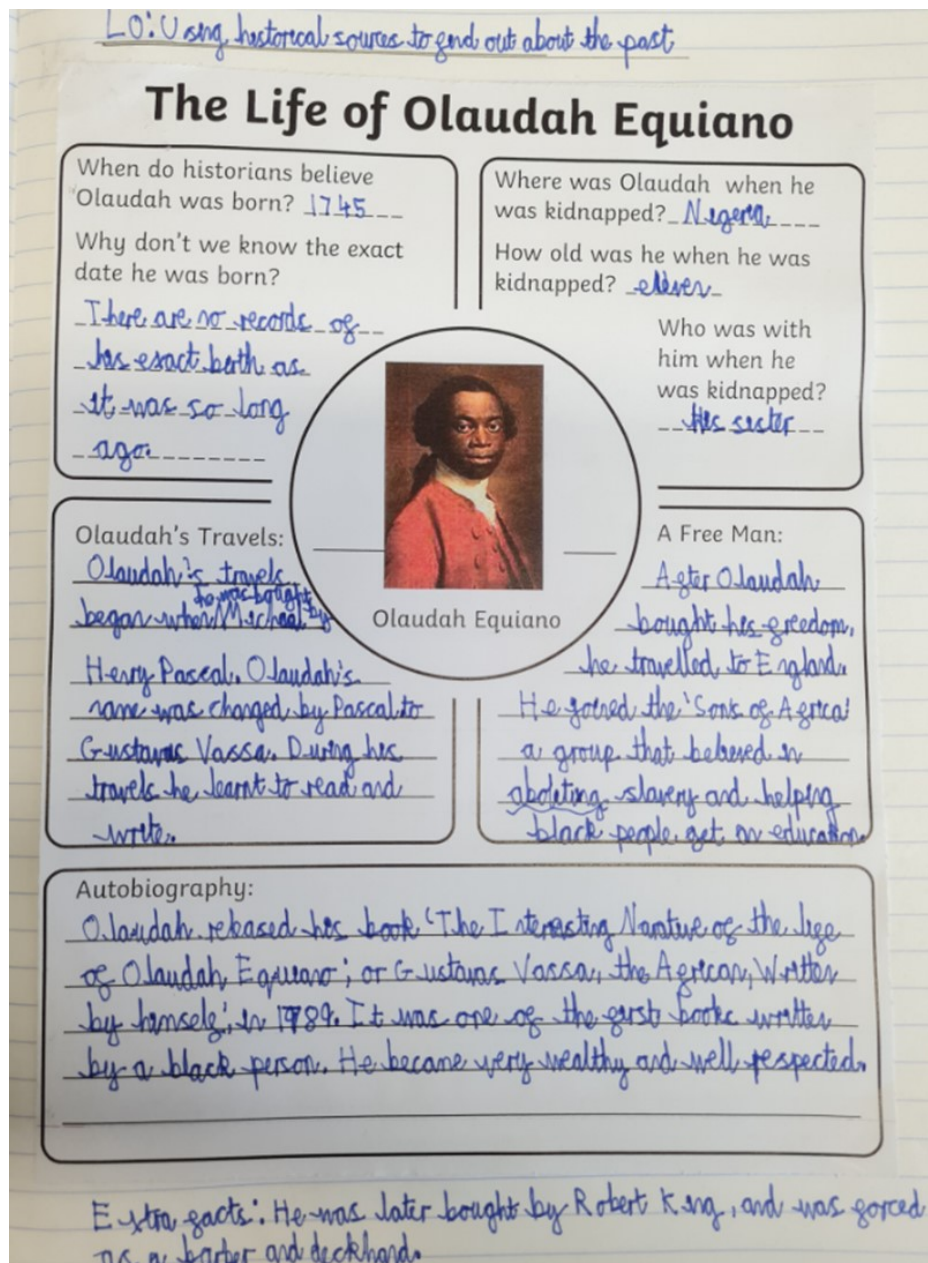 LO: Using historical sources to find out about the past
The Life of Olaudah Equiano
When do historians believe
Olaudah was born? 1745
Why don't we know the exact
date he was born?
There are no records of
his exact birth as
it was so long
ago.
Where was Olaudah when he
was kidnapped? Nigeria
How old was he when he was
kidnapped? eleven
Who was with
him when he
was kidnapped?
His sister
Olaudah Equiano
Olaudah's Travels:
Olaudah's travels
he was bought
began when Michael by
Henry Pascal. Olaudah's
name was changed by Pascal to
Gustavas Vassa. During his
travels he learnt to read and
write.
A Free Man:
After Olaudah
bought his freedom,
he travelled to England.
He joined the 'Sons of Africa'
a group that believed in
aboliting slavery and helping
black people get an education.
Autobiography:
Olaudah released his book 'The Interesting Narative of the life
of Olaudah Equiano; or Gustavas Vassa, the African, Written
by himself', in 1789. It was one of the first books written
by a black person. He became very wealthy and well respected.
Extra facts: He was later bought by Robert King, and was forced
as a barber and deckhand.